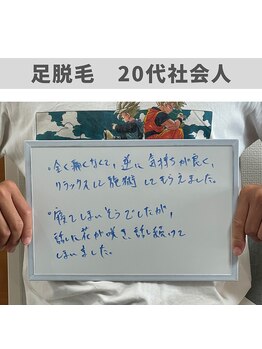 足脱毛　20代社会人
・全く痛くなくて、逆に気持ちが良く、
リラックスして施術してもらえました。
・寝てしまいそうでしたが、
話に花が咲き、話し続けて
しまいました。